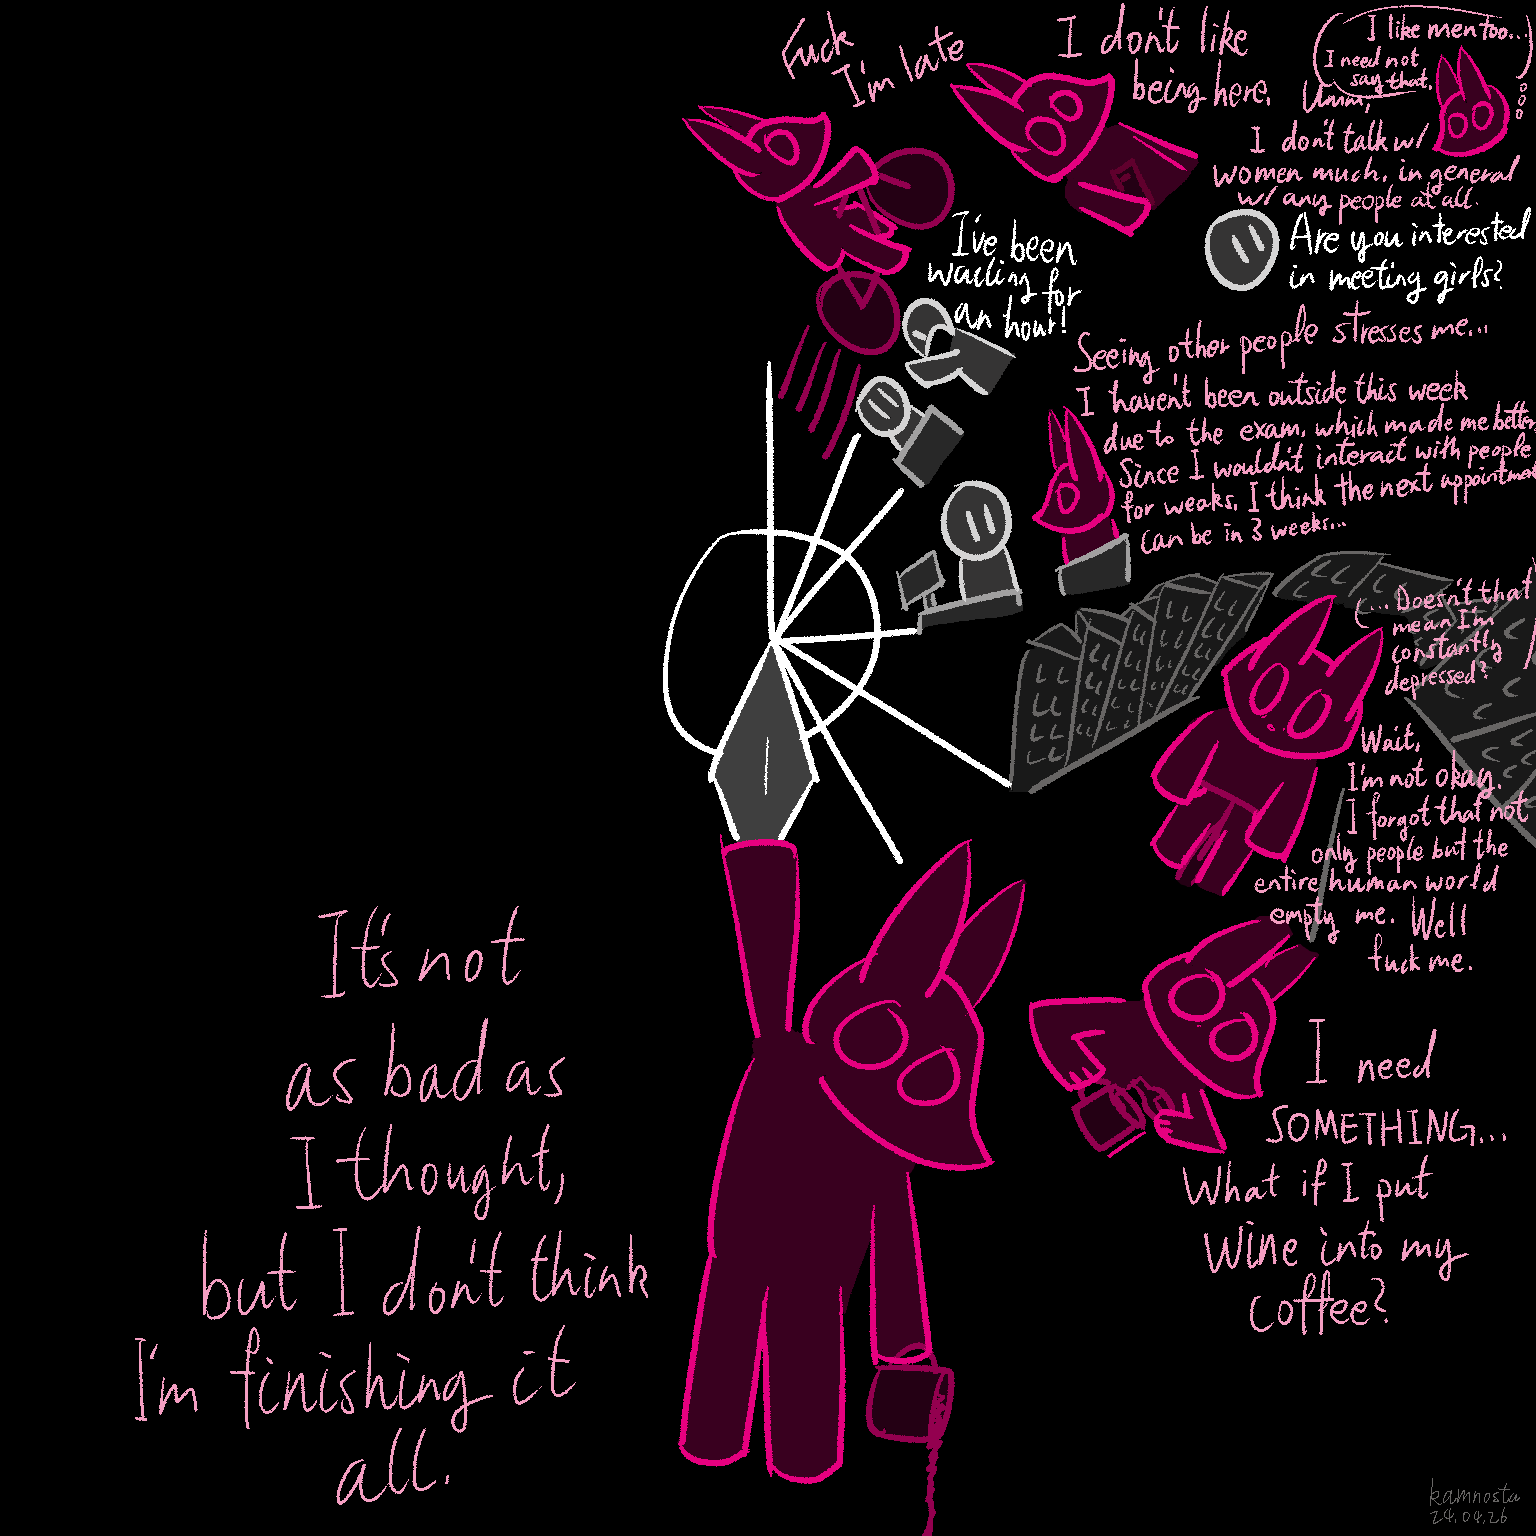 Fuck
I'm late
I don't like
being here.
I like men too...
I need not
say that.
Umm,
I don't talk w/
women much, in general
w/ any people at all.
Are you interested
in meeting girls?
I've been
waiting for
an hour!
Seeing other people stresses me...
I haven't been outside this week
due to the exam, which made me better.
Since I wouldn't interact with people
for weaks, I think the next appointment
can be in 3 weeks...
(... Doesn't that
mean I'm
constantly
depressed?)
Wait,
I'm not okay.
I forgot that not
only people but the
entire human world
empty me. Well
fuck me.
I need
SOMETHING...
What if I put
wine into my
coffee?
It's not
as bad as
I thought,
but I don't think
I'm finishing it
all.
kamnosta
24.04.26